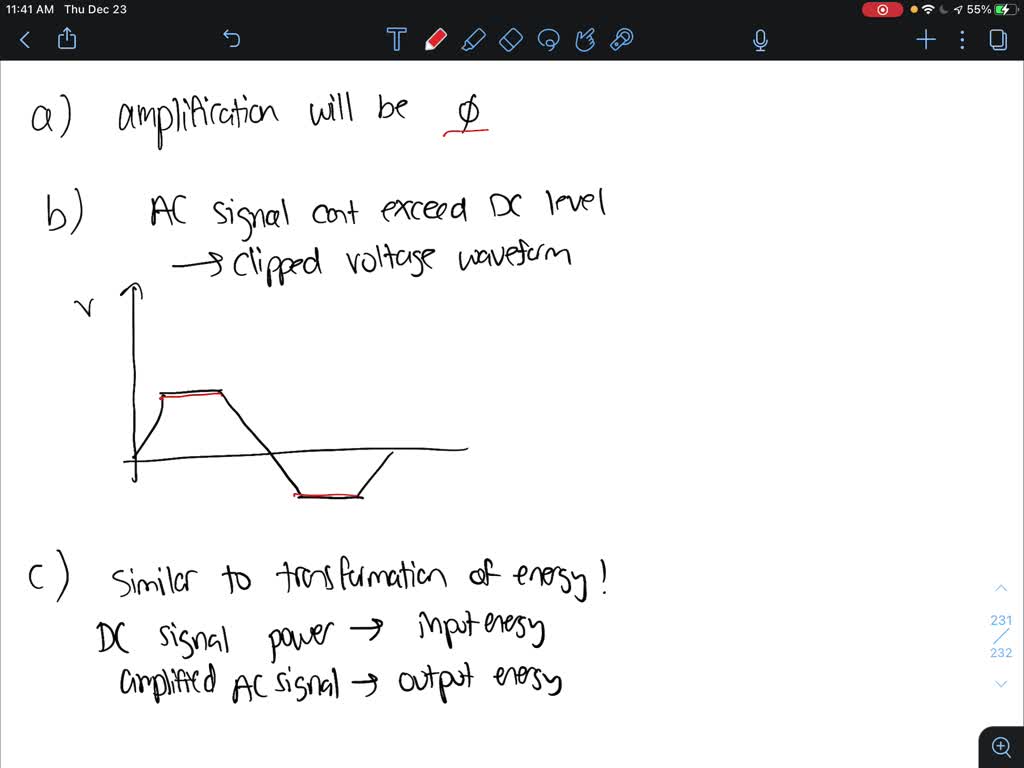 11:41 AM Thu Dec 23
55%
a) amplification will be ϕ
b) AC signal cant exceed DC level
→ clipped voltage waveform
V
c) similar to transformation of energy!
DC signal power → input energy
amplified AC signal → output energy
231
/
232